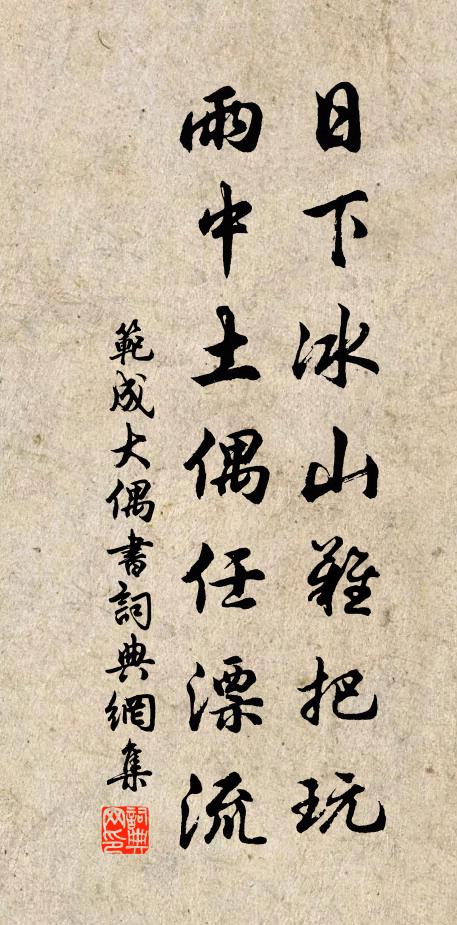 日下冰山難把玩
雨中土偶任漂流
範成大偶書詞典網集
詞典網印